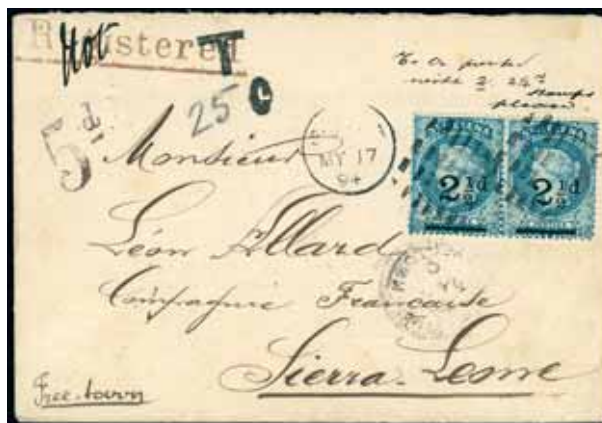 Registered
Not
T
25 c
5d
To be posted
with 2 2½d
stamps
please
MY 17
94
2½d 2½d
Monsieur
Léon Allard
Compagnie Francaise
Sierra-Leone
Free-town